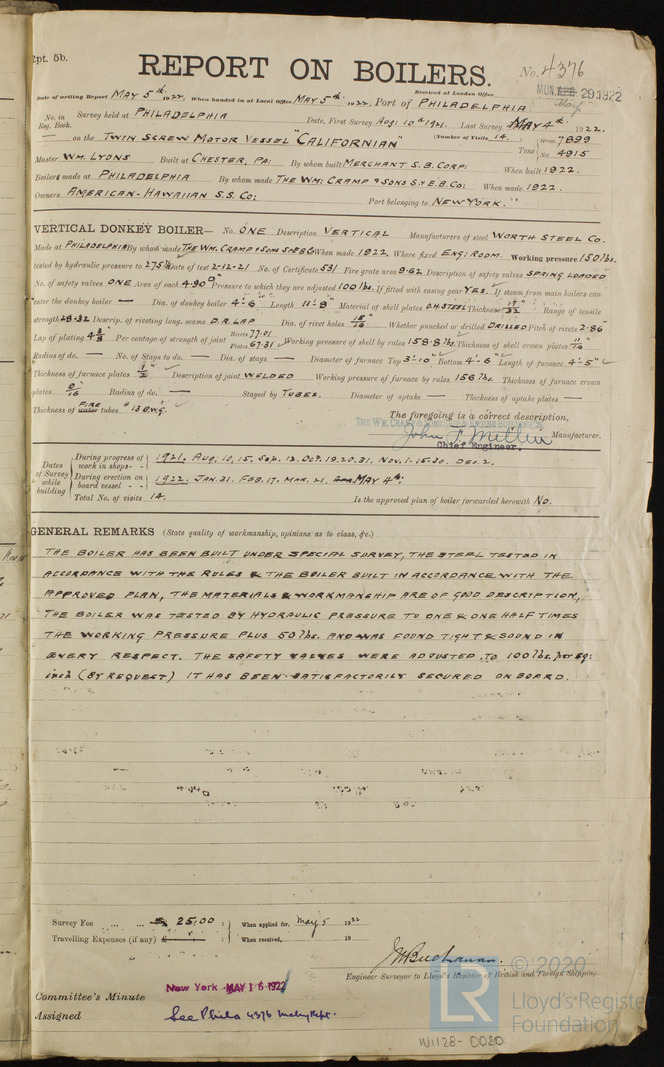 Rpt. 5b.
REPORT ON BOILERS.
No. 4376
Received at London Office MON. 29 1922
May
Date of writing Report MAY 5th 1922, When handed in at Local Office MAY 5th 1922. Port of PHILADELPHIA
No. in Reg. Book. Survey held at PHILADELPHIA Date, First Survey Aug: 10th 1921. Last Survey MAY 4th 1922.
— on the TWIN SCREW MOTOR VESSEL "CALIFORNIAN" (Number of Visits 14.) Tons { Gross 7899 Net 4915
Master WM. LYONS Built at CHESTER, PA: By whom built MERCHANT S.B. CORP: When built 1922.
Boilers made at PHILADELPHIA By whom made THE WM: CRAMP & SONS S & E.B. CO: When made 1922.
Owners AMERICAN-HAWAIIAN S.S. CO: Port belonging to NEW YORK.
VERTICAL DONKEY BOILER— No. ONE Description VERTICAL Manufacturers of steel WORTH STEEL CO.
Made at PHILADELPHIA By whom made THE WM: CRAMP & SONS S & E B Co When made 1922. Where fixed ENG: ROOM. Working pressure 150 lbs.
tested by hydraulic pressure to 275 lbs Date of test 2-12-21 No. of Certificate 531 Fire grate area 9.62 Description of safety valves SPRING LOADED
No. of safety valves ONE Area of each 4.90" Pressure to which they are adjusted 100 lbs. If fitted with easing gear YES. If steam from main boilers can
enter the donkey boiler — Dia. of donkey boiler 4'-6" Length 11'-9" Material of shell plates O.H. STEEL Thickness 17/32" Range of tensile
strength 28-32 Descrip. of riveting long. seams D.R. LAP Dia. of rivet holes 15/16" Whether punched or drilled DRILLED Pitch of rivets 2.86"
Lap of plating 4 3/8" Per centage of strength of joint Rivets 77.01 Plates 67.31 Working pressure of shell by rules 158.8 lbs. Thickness of shell crown plates 11/16"
Radius of do. — No. of Stays to do. — Dia. of stays — Diameter of furnace Top 3'-10" Bottom 4'-6" Length of furnace 4'-5"
Thickness of furnace plates 1/2" Description of joint WELDED Working pressure of furnace by rules 156 lbs. Thickness of furnace crown
plates 9/16" Radius of do. — Stayed by TUBES. Diameter of uptake — Thickness of uptake plates —
Thickness of water FIRE tubes #13 B.W.G.
The foregoing is a correct description,
THE WM. CRAMP & SONS SHIP & ENGINE BUILDING CO.
Manufacturer.
Chief Engineer.
Dates of Survey while building
During progress of work in shops - - 1921. AUG, 10, 15. SEP. 12. OCT. 19.20.31. NOV. 1-15-30. DEC. 2.
During erection on board vessel - - 1922. JAN. 31. FEB. 17. MAR. 21. MAY 4th.
Total No. of visits 14. Is the approved plan of boiler forwarded herewith No.
GENERAL REMARKS (State quality of workmanship, opinions as to class, &c.)
THE BOILER HAS BEEN BUILT UNDER SPECIAL SURVEY, THE STEEL TESTED IN
ACCORDANCE WITH THE RULES & THE BOILER BUILT IN ACCORDANCE WITH THE
APPROVED PLAN, THE MATERIALS & WORKMANSHIP ARE OF GOOD DESCRIPTION,
THE BOILER WAS TESTED BY HYDRAULIC PRESSURE TO ONE & ONE HALF TIMES
THE WORKING PRESSURE PLUS 50 lbs. AND WAS FOUND TIGHT & SOUND IN
EVERY RESPECT. THE SAFETY VALVES WERE ADJUSTED TO 100 lbs. per sq:
inch (BY REQUEST) IT HAS BEEN SATISFACTORILY SECURED ON BOARD.
Survey Fee ... ... $ 25.00 : When applied for, May 5 1922
Travelling Expenses (if any) £ : : When received, 19
J W Buchanan.
Engineer Surveyor to Lloyd's Register of British and Foreign Shipping.
Committee's Minute New York MAY 16 1922
Assigned See Phila 4376 Mchy Rpt.
W1128-0020
LR © 2020
Lloyd's Register
Foundation